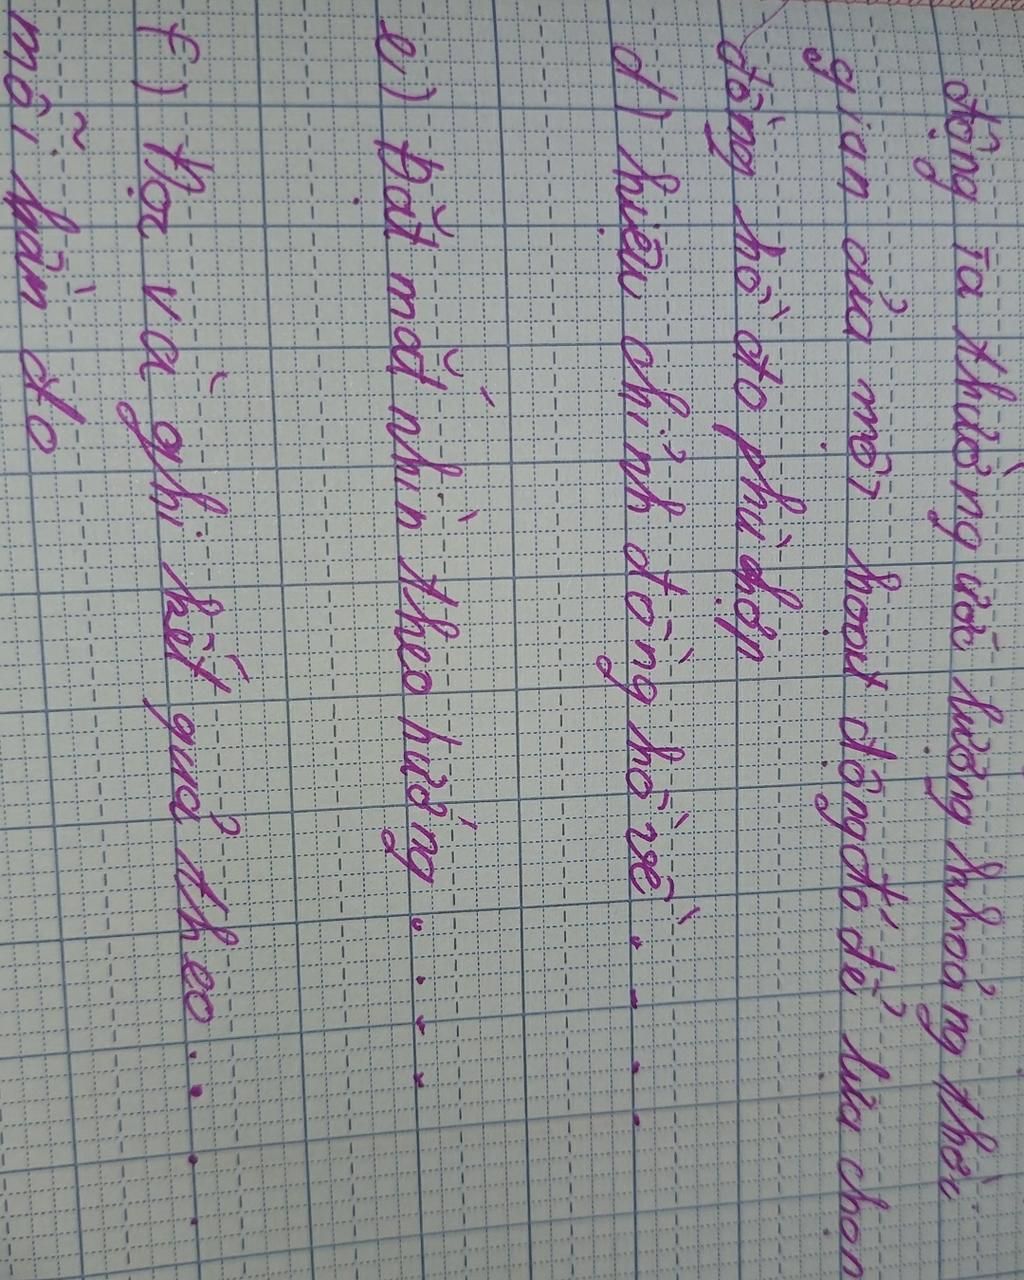 động ta thường ước lượng khoảng thời
gian của một hoạt động đó để lựa chọn
đồng hồ đo phù hợp
d) hiệu chỉnh đồng hồ về . . . .
e) Đặt mắt nhìn theo hướng . . . .
f) Đọc và ghi kết quả theo . . . .
mỗi lần đo